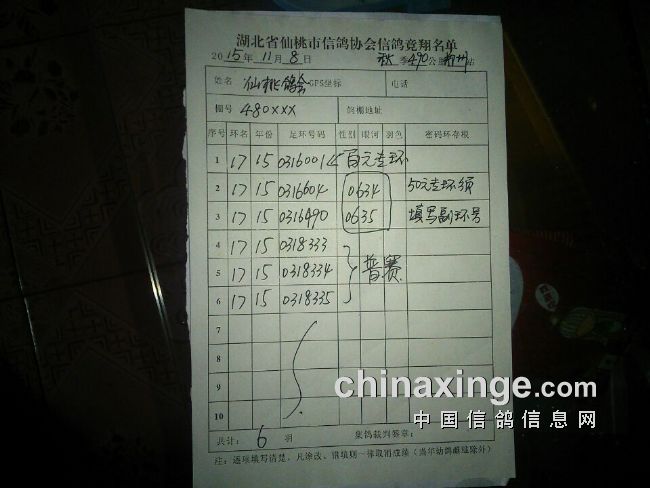 湖北省仙桃市信鸽协会信鸽竞翔名单
2015年11月8日 秋季490公里 站
姓名 仙桃鸽会 GPS坐标 电话
棚号 480××× 鸽棚地址
序号 环名 年份 足环号码 性别 眼河 羽色 密码环存根
1 17 15 0316001 百元专环
2 17 15 0316604 0634 50元专环须
3 17 15 0316490 0635 填写副环号
4 17 15 0318333
5 17 15 0318334 普赛
6 17 15 0318335
7
8
9
10
共计: 6 羽 集鸽裁判签章:
注:逐项填写清楚、凡涂改、错填则一律取消成绩(当年幼鸽雌雄除外)
chinaxinge.com
中国信鸽信息网